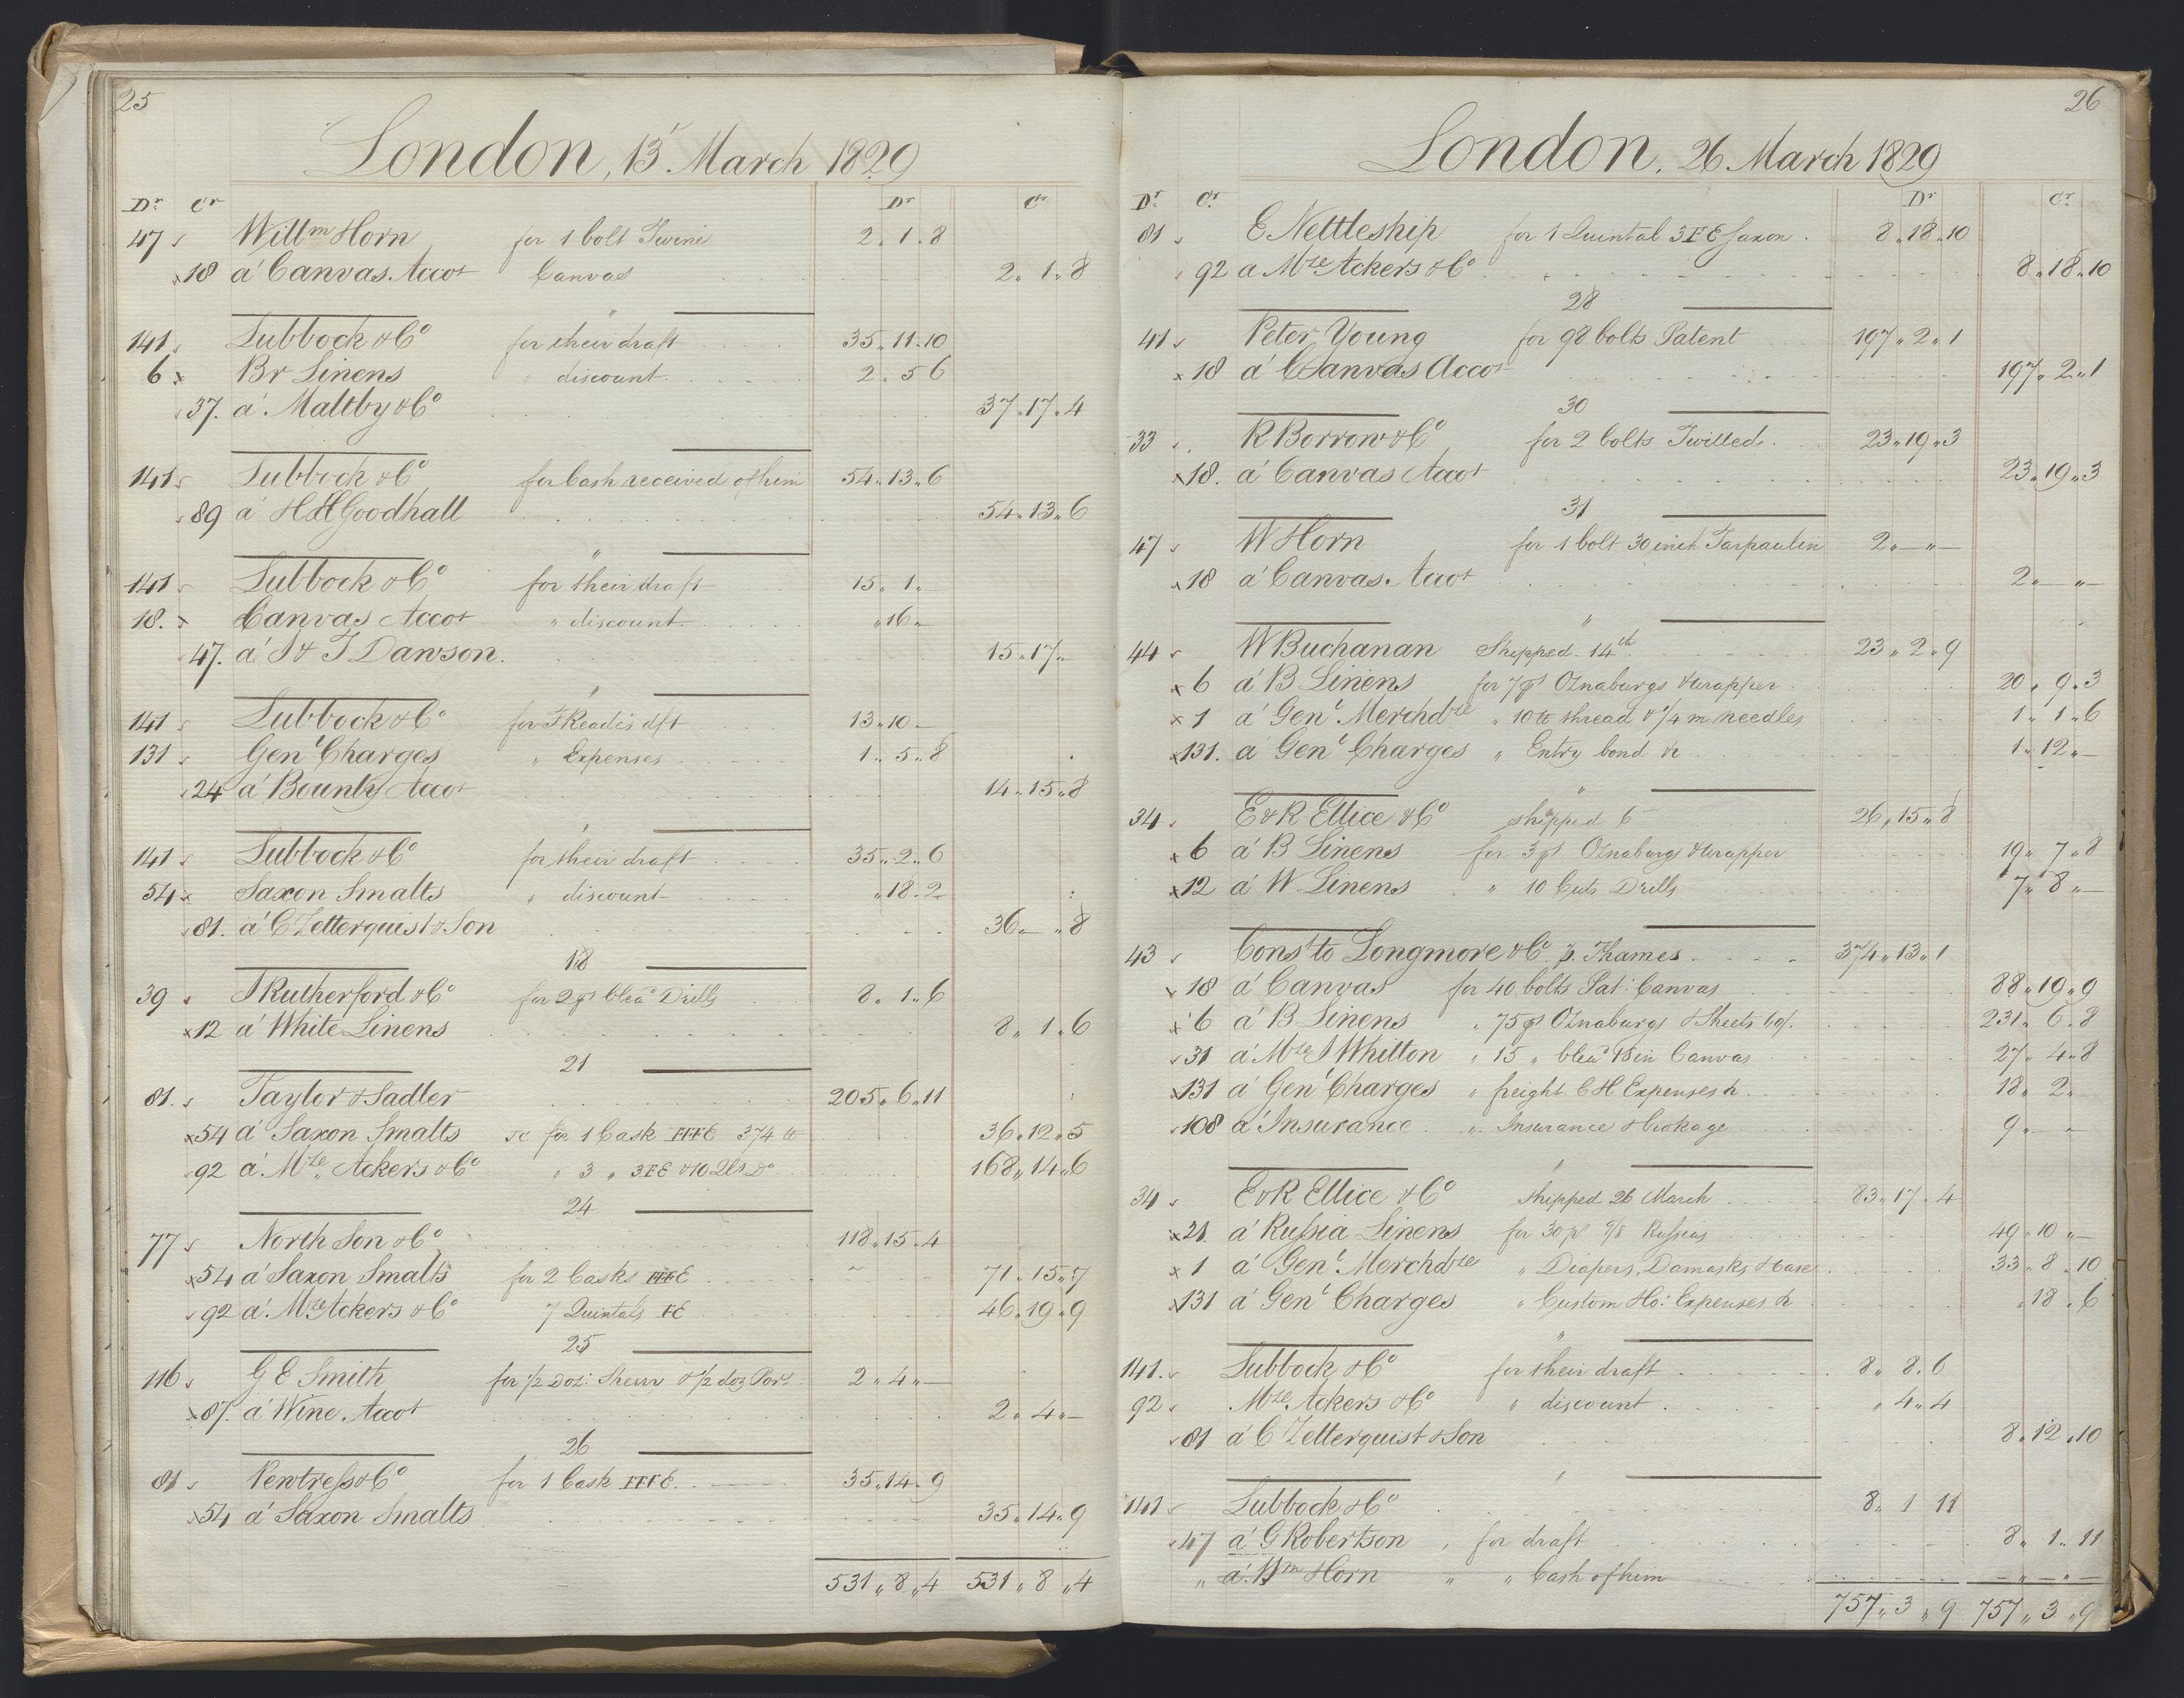 25
London, 13 March 1829
Dr Cr Dr Cr
47 Willm Horn for 1 bolt Twine 2 " 1 " 8
18 a' Canvas Accot Canvas 2 " 1 " 8
"
141 Lubbock & Co for their draft 35 " 11 " 10
6 Br Linens " discount 2 " 5 6
37. a' Maltby & Co 37 " 17 " 4
141 Lubbock & Co for Cash received of him 54 " 13 " 6
89 a' H H Goodhall 54 " 13 " 6
"
141 Lubbock & Co for their draft 15 " 1 " —
18. Canvas Accot " discount " 16 " —
47. a' J & T Dawson 15 " 17 " —
"
141 Lubbock & Co for F Reade's dft 13 " 10 —
131 Genl Charges " Expenses 1 " 5 " 8
24 a' Bounty Accot 14 " 15 " 8
"
141 Lubbock & Co for their draft 35 " 2 " 6
54 Saxon Smalts " discount " 18 " 2
81. a' C Zetterquist & Son 36 " — " 8
18
39 J Rutherford & Co for 2 ps blead Drills 8 " 1 " 6
12 a' White Linens 8 " 1 " 6
21
81. Taylor & Sadler 205 " 6 " 11
54 a' Saxon Smalts for 1 Cask FFFE 374 lb 36 " 12 " 5
92 a' Mdze Ackers & Co " 3 " 3FE & 10 Qls Do 168 " 14 " 6
24
77 North Son & Co 118 " 15 " 4
54 a' Saxon Smalts for 2 Casks FFFE 71 " 15 " 7
92 a' Mdze Ackers & Co 7 Quintals FE 46 " 19 " 9
25
116 G E Smith for 1/2 Doz: Sherry & 1/2 doz Port 2 " 4 " —
87. a' Wine Accot 2 " 4 " —
26
81 Pewtress & Co for 1 Cask FFFE 35 " 14 " 9
54 a' Saxon Smalts 35 " 14 " 9
531 " 8 " 4 531 " 8 " 4
26
London, 26 March 1829
Dr Cr Dr Cr
81 E Nettleship for 1 Quintal 3FE Saxon 8 " 18 " 10
92 a Mdze Ackers & Co 8 " 18 " 10
28
41 Peter Young for 98 bolts Patent 197 " 2 " 1
18 a' Canvas Accot 197 " 2 " 1
30
33 R Borrow & Co for 2 bolts Twilled 23 " 19 " 3
18. a' Canvas Accot 23 " 19 " 3
31
47 W Horn for 1 bolt 30 inch Tarpaulin 2 " — " —
18 a' Canvas Accot 2 " — " —
"
44 W Buchanan Shipped 14th 23 " 2 " 9
6 a' B Linens for 7 ps Oznaburgs & wrapper 20 " 9 " 3
1 a' Genl Merchdze " 10 lb thread & 1/4 m needles 1 " 1 " 6
131. a' Genl Charges " Entry bond &c 1 " 12 " —
"
34 E & R Ellice & Co shipped 6 26 " 15 " 8
6 a' B Linens for 3 ps Oznaburgs & wrapper 19 " 7 " 8
12 a' W Linens " 10 Cuts Drills 7 " 8 " —
43 Const to Longmore & Co p. Thames 374 " 13 " 1
18 a' Canvas for 40 bolts Pat: Canvas 88 " 19 " 9
6 a' B Linens " 75 ps Oznaburgs & Sheets 231 " 6 " 8
31 a' Mdze J Whitton " 15 " blead 18 in Canvas 27 " 4 " 8
131 a' Genl Charges " freight C H Expenses &c 18 " 2 "
108 a' Insurance " Insurance & brokage 9 " — "
"
34 E & R Ellice & Co Shipped 26 March 83 " 17 " 4
21. a' Russia Linens for 30 ps 9/8 Russias 49 " 10 " —
1 a' Genl Merchdze " Diapers, Damasks & Case 33 " 8 " 10
131 a' Genl Charges " Custom Ho: Expenses &c " 18 " 6
"
141. Lubbock & Co for their draft 8 " 8 " 6
92 Mdze Ackers & Co " discount " 4 " 4
81 a' C Zetterquist & Son 8 " 12 " 10
141 Lubbock & Co 8 " 1 11
47 a' G Robertson for draft 8 " 1 " 11
" a' Wm Horn " " Cash of him — " — " —
757 " 3 " 9 757 " 3 " 9